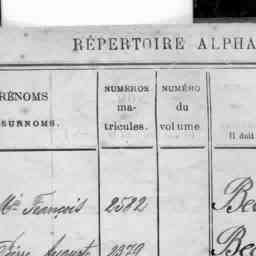 RÉPERTOIRE ALPHA
RÉNOMS
SURNOMS.
NUMÉROS
ma-
tricules.
NUMÉRO
du
volume
Il doit
François 2582 Be
Auguste 2379 Be